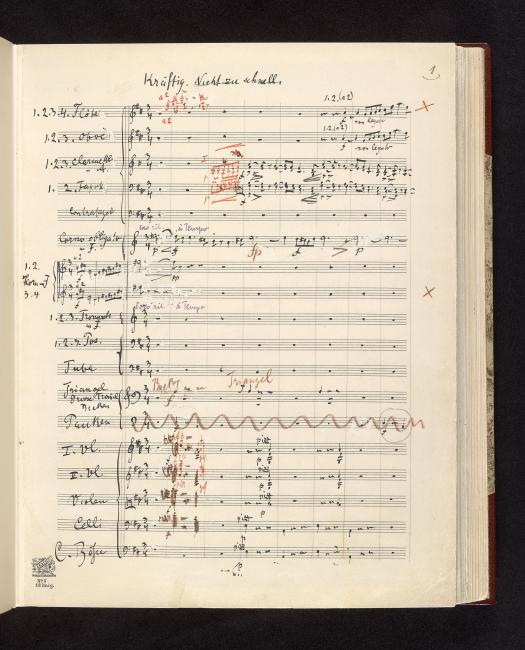 1
Kräftig. Nicht zu schnell.
1. 2. (a 2)
1. 2. 3. 4. Flöte
a 2
non legato
1. 2. (a 2)
1. 2. 3. Oboe
non legato
1. 2. 3. Clarinette
1. 2. Fagott
Contrafagott
a Tempo
Corno obligato
f
p
fp
f
p
1. 2.
Horn in F
3. 4
pp
a Tempo
1. 2. 3. Trompete
1. 2. 3. Pos.
Tuba
Triangel
Becken
Triangel
f
Pauken
I. Vl.
pizz
p
II. Vl.
Violen
p
Celli
pizz
C. Bässe
p